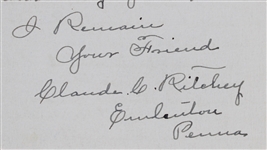 I Remain
Your Friend
Claude C. Ritchey
Emlenton
Penna